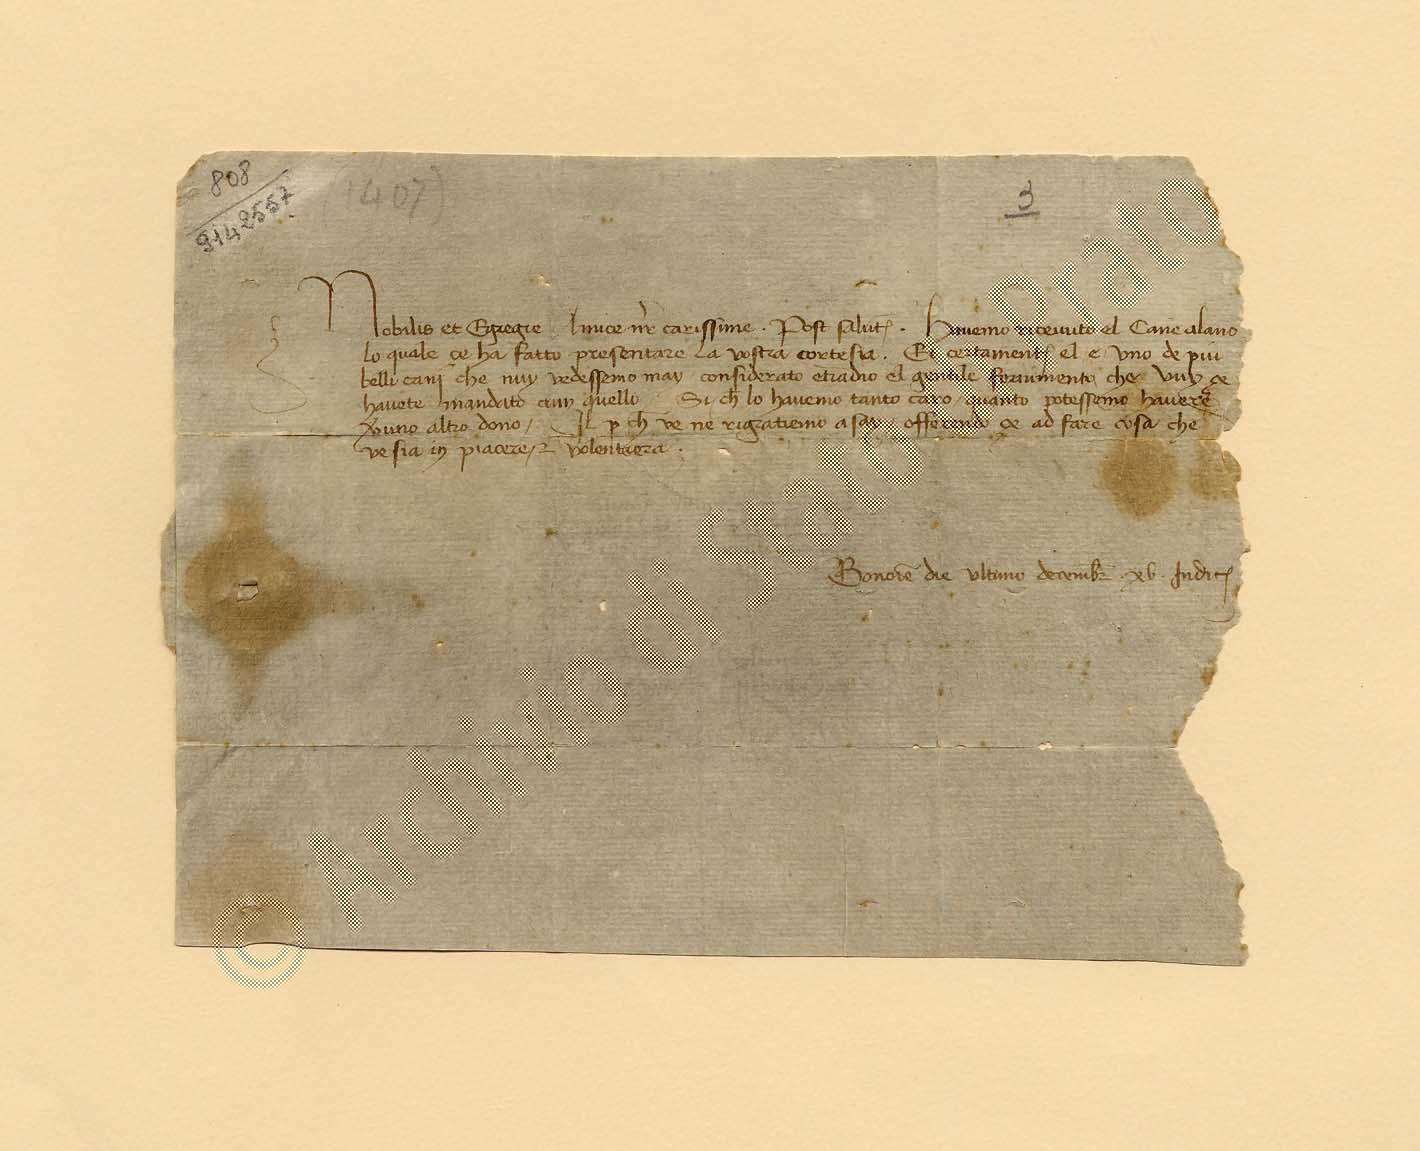 808
9142557
1407)
3
Nobilis et Egregie Amice nr carissime . Post salut . Havemo ricevuto el Cane alano
lo quale ce ha fatto presentare la vostra cortesia . Et certament el e uno de piu
belli cani che nuy vedessemo may considerato el gentile fornimento che vuy ce
havete mandato cum quello Si ch lo havemo tanto caro quanto potessemo havere
uno altro dono / Il p ch ve ne rigratiemo asay / offerendo ce ad fare cosa che
ve sia in piacere volentiera .
Bonoie die ultimo decembr . xv . Indic
© Archivio di Stato di Prato